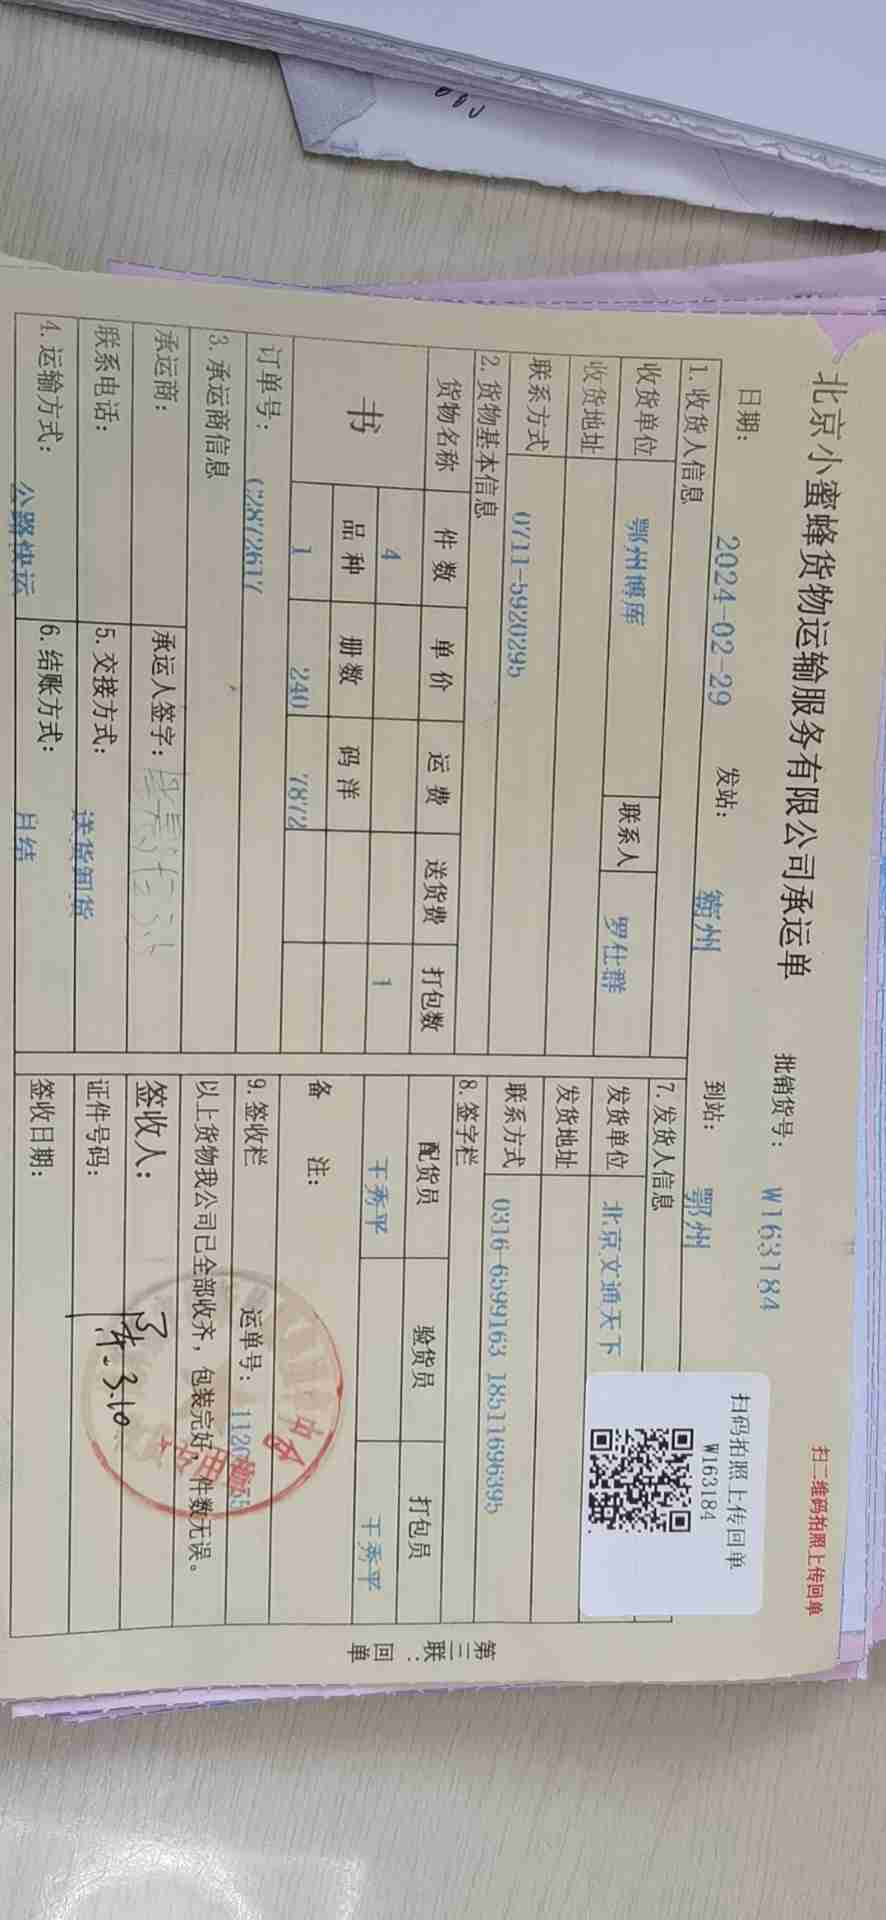 北京小蜜蜂货物运输服务有限公司承运单
扫二维码拍照上传回单
批销货号: W163184
扫码拍照上传回单
W163184
日期: 2024-02-29 发站: 霸州 到站: 鄂州
1.收货人信息
收货单位 鄂州博库 联系人 罗仕群
收货地址
联系方式 0711-5920295
2.货物基本信息
货物名称 件数 单价 运费 送货费 打包数
书 4 1
品种 册数 码洋
1 240 7872
订单号: C2872617
3.承运商信息
承运商: 承运人签字:
联系电话: 5.交接方式: 送货卸货
4.运输方式: 公路快运 6.结账方式: 月结
7.发货人信息
发货单位 北京文通天下
发货地址
联系方式 0316-6599163 18511696395
8.签字栏
配货员 验货员 打包员
王秀平 王秀平
备 注:
9.签收栏 运单号:
以上货物我公司已全部收齐，包装完好，件数无误。
签收人:
证件号码: 3.10
签收日期:
第三联:回单